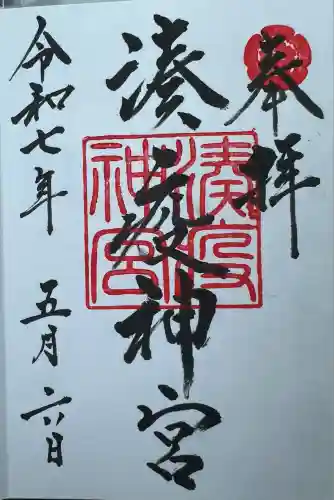 奉拝
湊疫神宮
湊疫
神宮
令和七年 五月六日